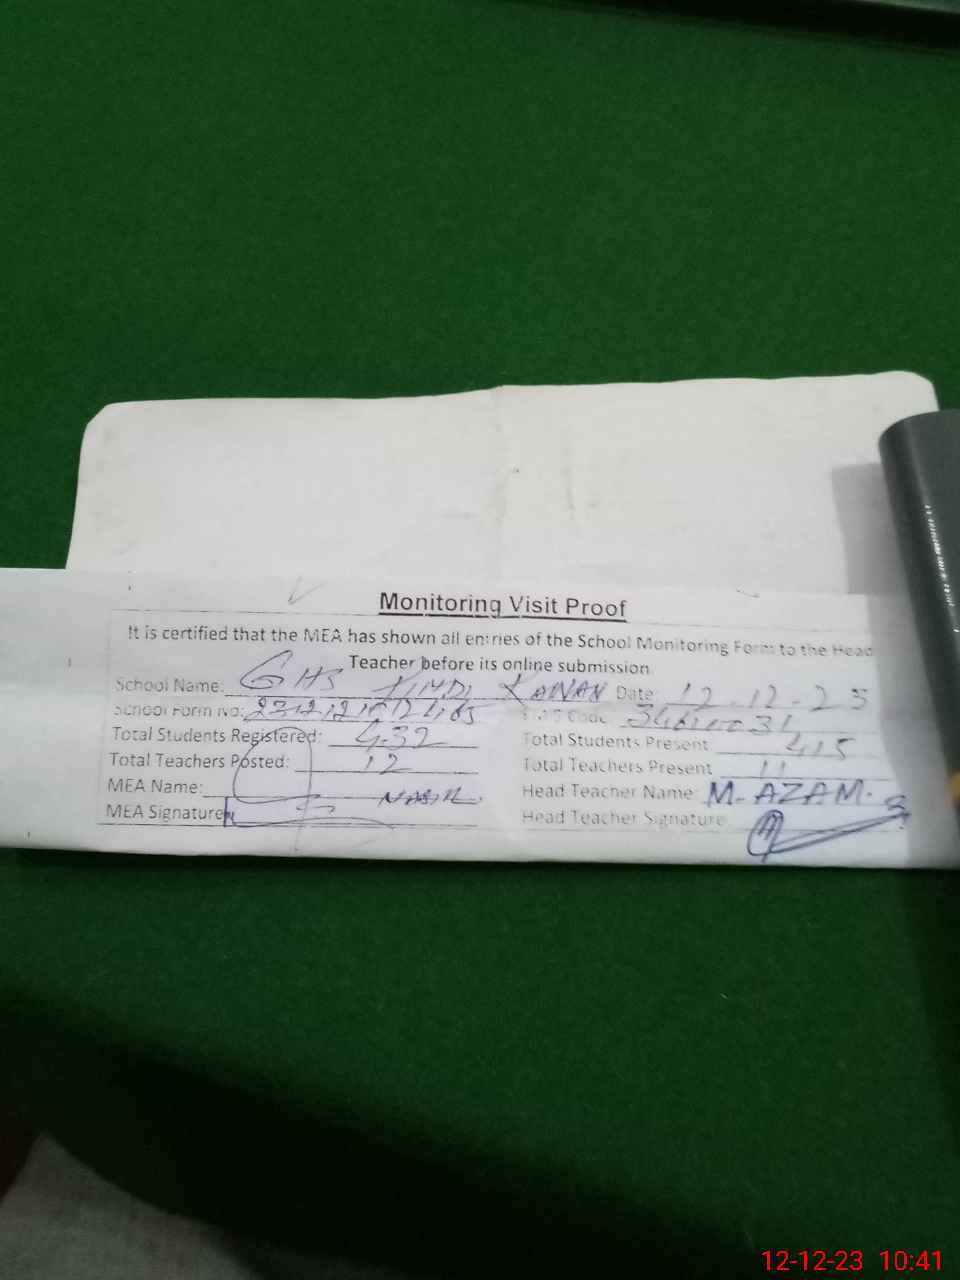 Monitoring Visit Proof
It is certified that the MEA has shown all entries of the School Monitoring Form to the Head
Teacher before its online submission
School Name: GHS Date: 12.12.23
School Form No:
Total Students Registered: 432 Total Students Present 415
Total Teachers Posted: 12 Total Teachers Present 11
MEA Name: Head Teacher Name: M. AZAM.
MEA Signature Head Teacher Signature
12-12-23 10:41